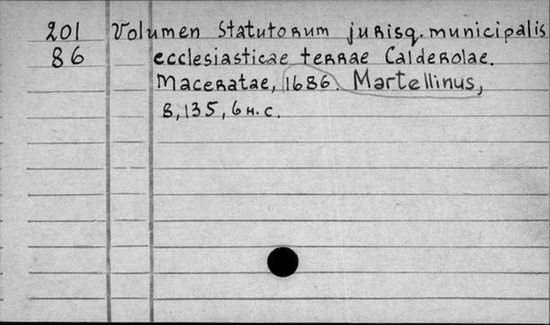 201 Volumen Statutorum jurisq. municipalis
86 ecclesiasticae terrae Calderolae.
Maceratae, 1686. Martellinus,
8, 135, 6 н. с.